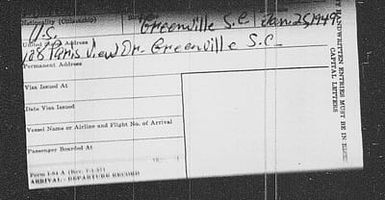 Nationality (Citizenship)
U.S. Greenville S.C. Jan. 25, 1949
United States Address
108 Paris View Dr. Greenville S.C.
Permanent Address
Visa Issued At
Date Visa Issued
Vessel Name or Airline and Flight No. of Arrival
Passenger Boarded At
Form I-94 A
ARRIVAL - DEPARTURE RECORD
HANDWRITTEN ENTRIES MUST BE IN BLOCK
CAPITAL LETTERS